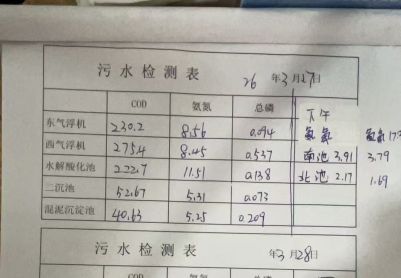 污水检测表 26年3月27日
COD 氨氮 总磷 下午
东气浮机 230.2 8.56 0.094 氨氮 氨氮 17.3
西气浮机 275.4 8.45 0.537 南池 3.91 3.79
水解酸化池 222.7 11.51 0.138 北池 2.17 1.69
二沉池 52.67 5.31 0.073
混泥沉淀池 40.63 5.25 0.209
污水检测表 年3月28日
COD 氨氮 总磷